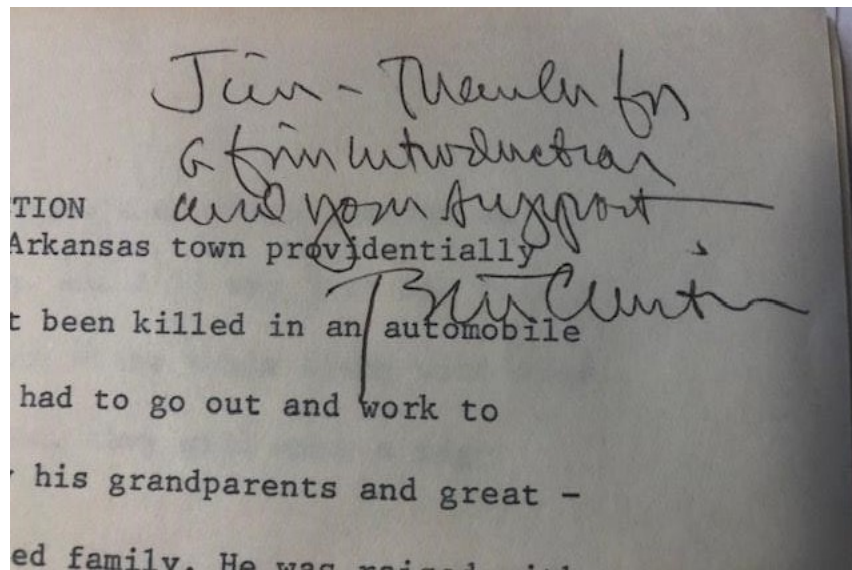 Jim - Thanks for
a fine introduction
and your support
TION
Arkansas town providentially
Bill Clinton
t been killed in an automobile
had to go out and work to
his grandparents and great -
ed family. He was raised with